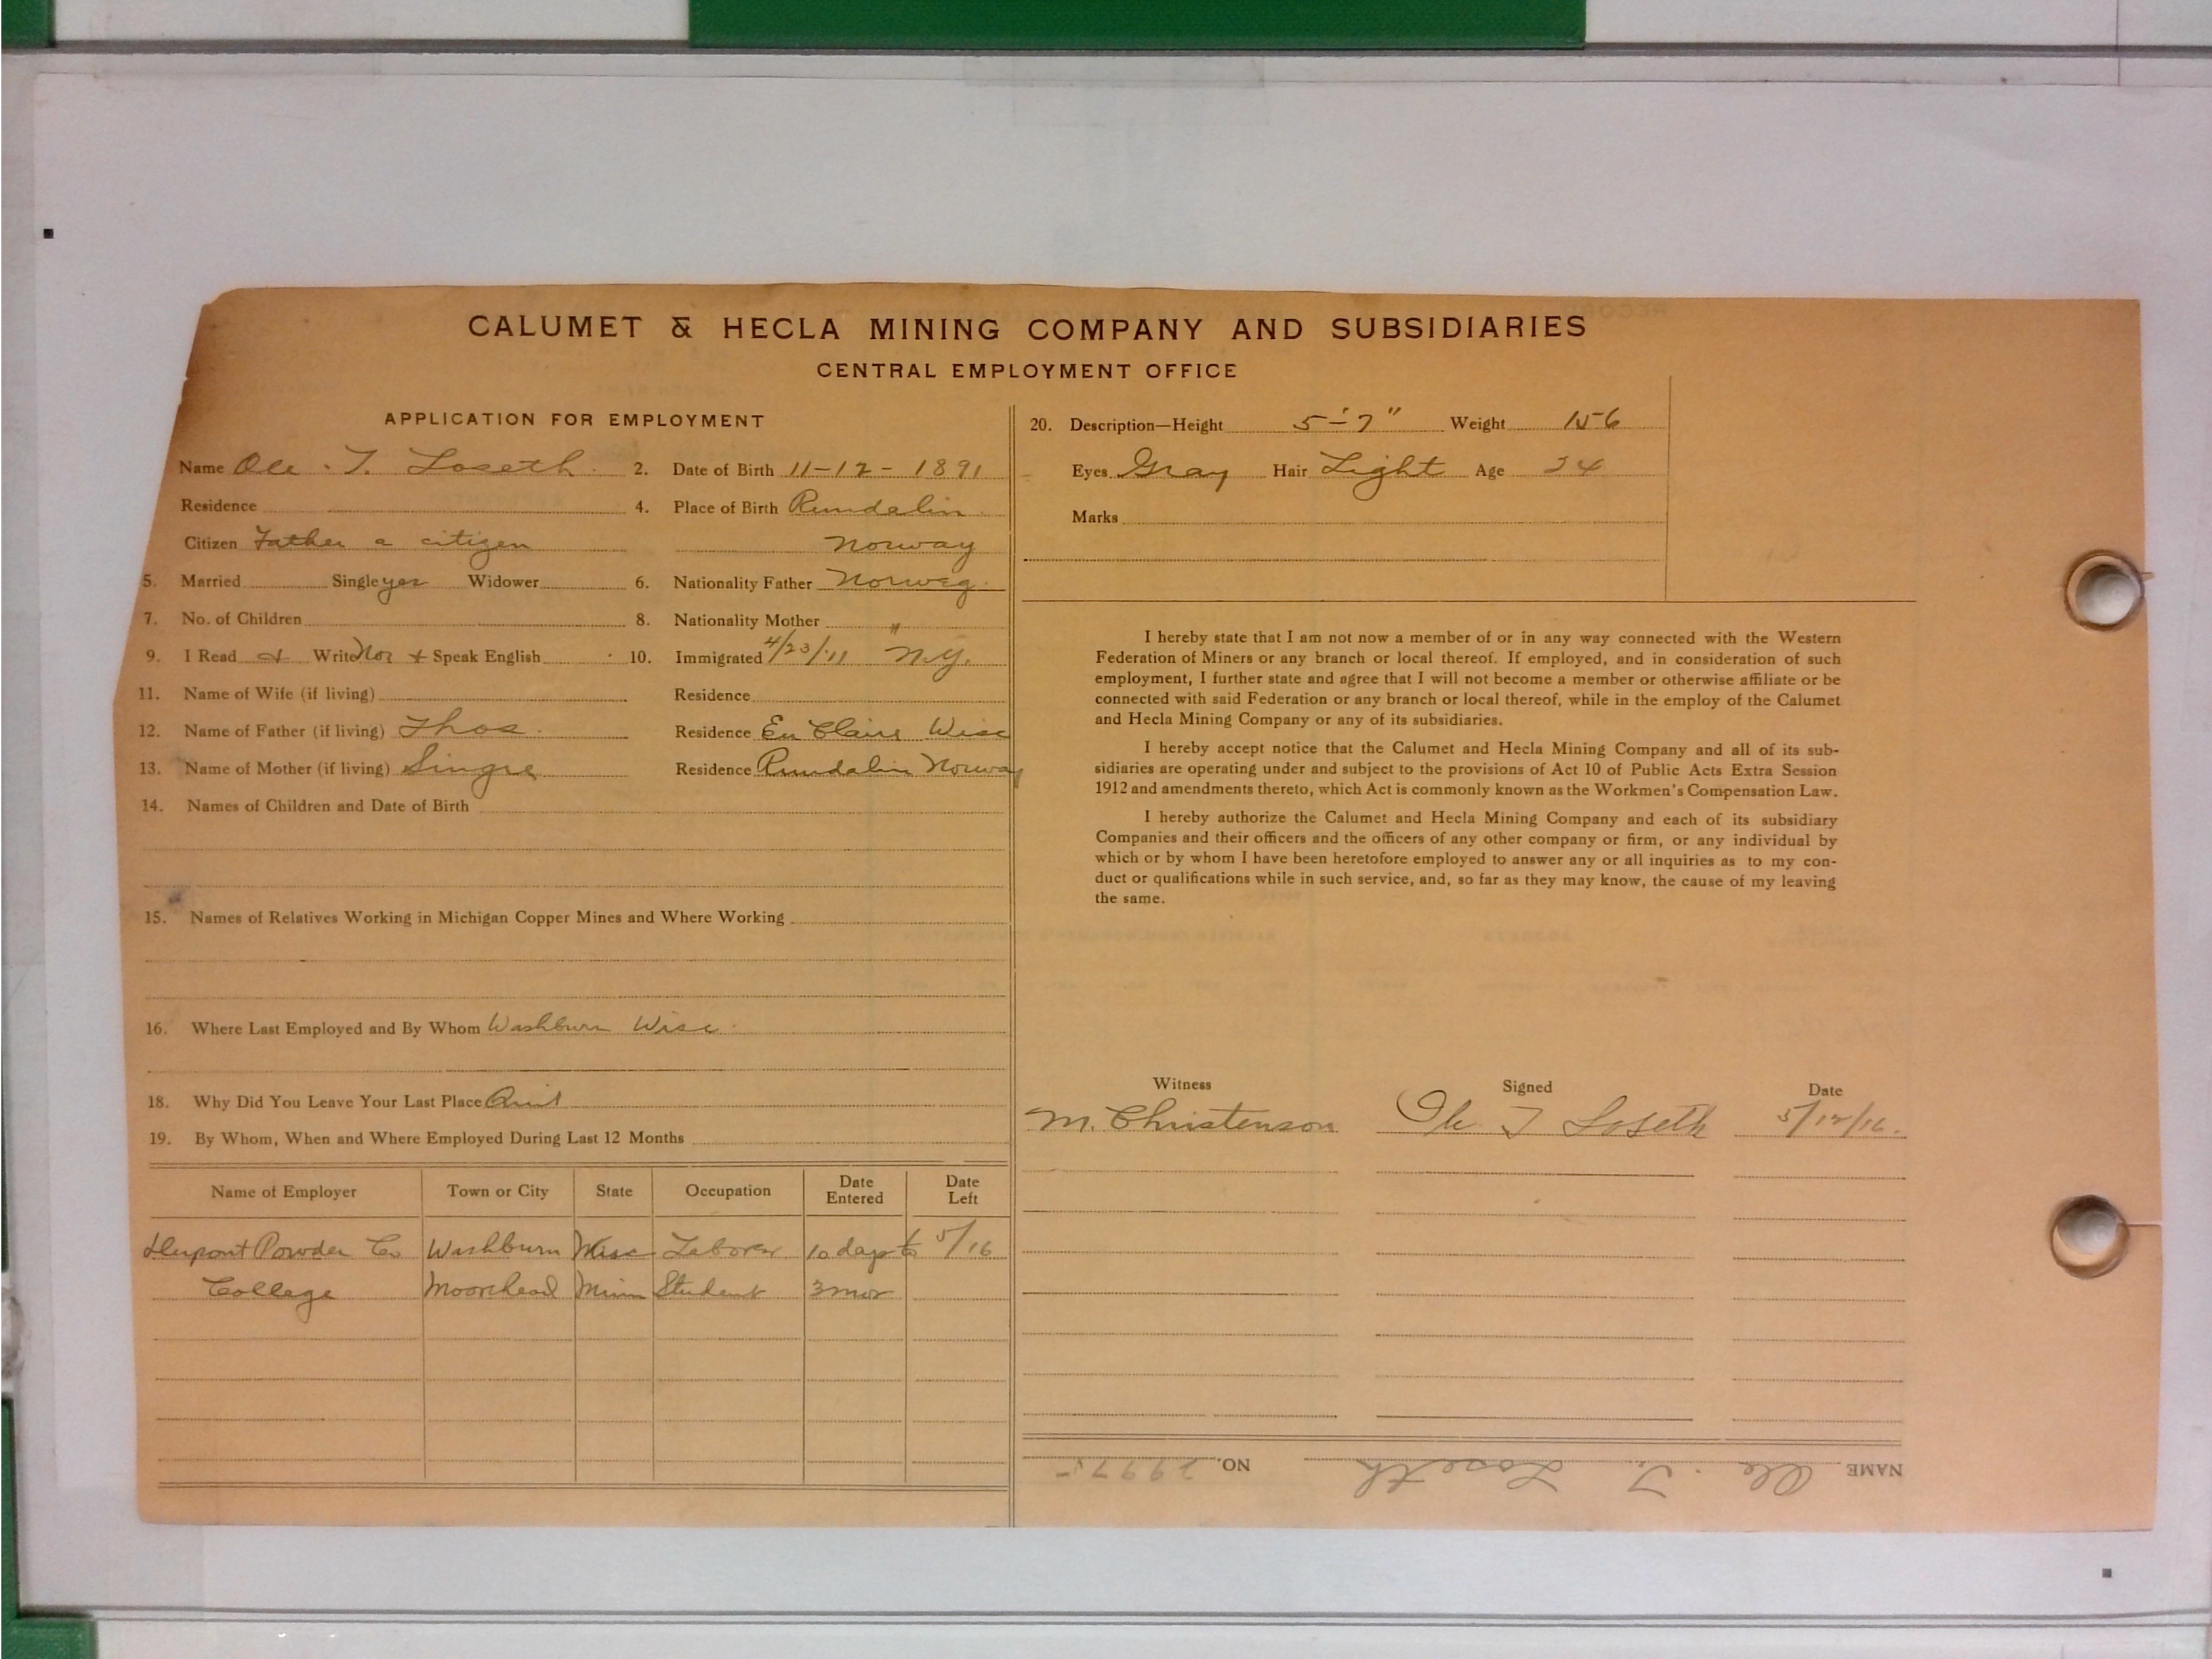 CALUMET & HECLA MINING COMPANY AND SUBSIDIARIES
CENTRAL EMPLOYMENT OFFICE
APPLICATION FOR EMPLOYMENT
Name Ole . T. Loseth 2. Date of Birth 11-12-1891
Residence 4. Place of Birth Rundalin
Citizen Father a citizen Norway
5. Married Single yes Widower 6. Nationality Father Norweg.
7. No. of Children 8. Nationality Mother "
9. I Read & Write Nor + Speak English 10. Immigrated 4/23/'11 N.Y.
11. Name of Wife (if living) Residence
12. Name of Father (if living) Thos. Residence Eu Claire Wisc
13. Name of Mother (if living) Singre Residence Rundalin Norway
14. Names of Children and Date of Birth
15. Names of Relatives Working in Michigan Copper Mines and Where Working
16. Where Last Employed and By Whom Washburn Wisc.
18. Why Did You Leave Your Last Place Quit
19. By Whom, When and Where Employed During Last 12 Months
Name of Employer Town or City State Occupation Date Entered Date Left
Dupont Powder Co Washburn Wisc Laborer 10 days to 5/16
College Moorhead Minn Student 3 mos
20. Description—Height 5-'7" Weight 156
Eyes Gray Hair Light Age 24
Marks
I hereby state that I am not now a member of or in any way connected with the Western
Federation of Miners or any branch or local thereof. If employed, and in consideration of such
employment, I further state and agree that I will not become a member or otherwise affiliate or be
connected with said Federation or any branch or local thereof, while in the employ of the Calumet
and Hecla Mining Company or any of its subsidiaries.
I hereby accept notice that the Calumet and Hecla Mining Company and all of its sub-
sidiaries are operating under and subject to the provisions of Act 10 of Public Acts Extra Session
1912 and amendments thereto, which Act is commonly known as the Workmen's Compensation Law.
I hereby authorize the Calumet and Hecla Mining Company and each of its subsidiary
Companies and their officers and the officers of any other company or firm, or any individual by
which or by whom I have been heretofore employed to answer any or all inquiries as to my con-
duct or qualifications while in such service, and, so far as they may know, the cause of my leaving
the same.
Witness Signed Date
M. Christenson Ole T Loseth 5/12/16.
NAME Ole. T. Loseth NO. 29975